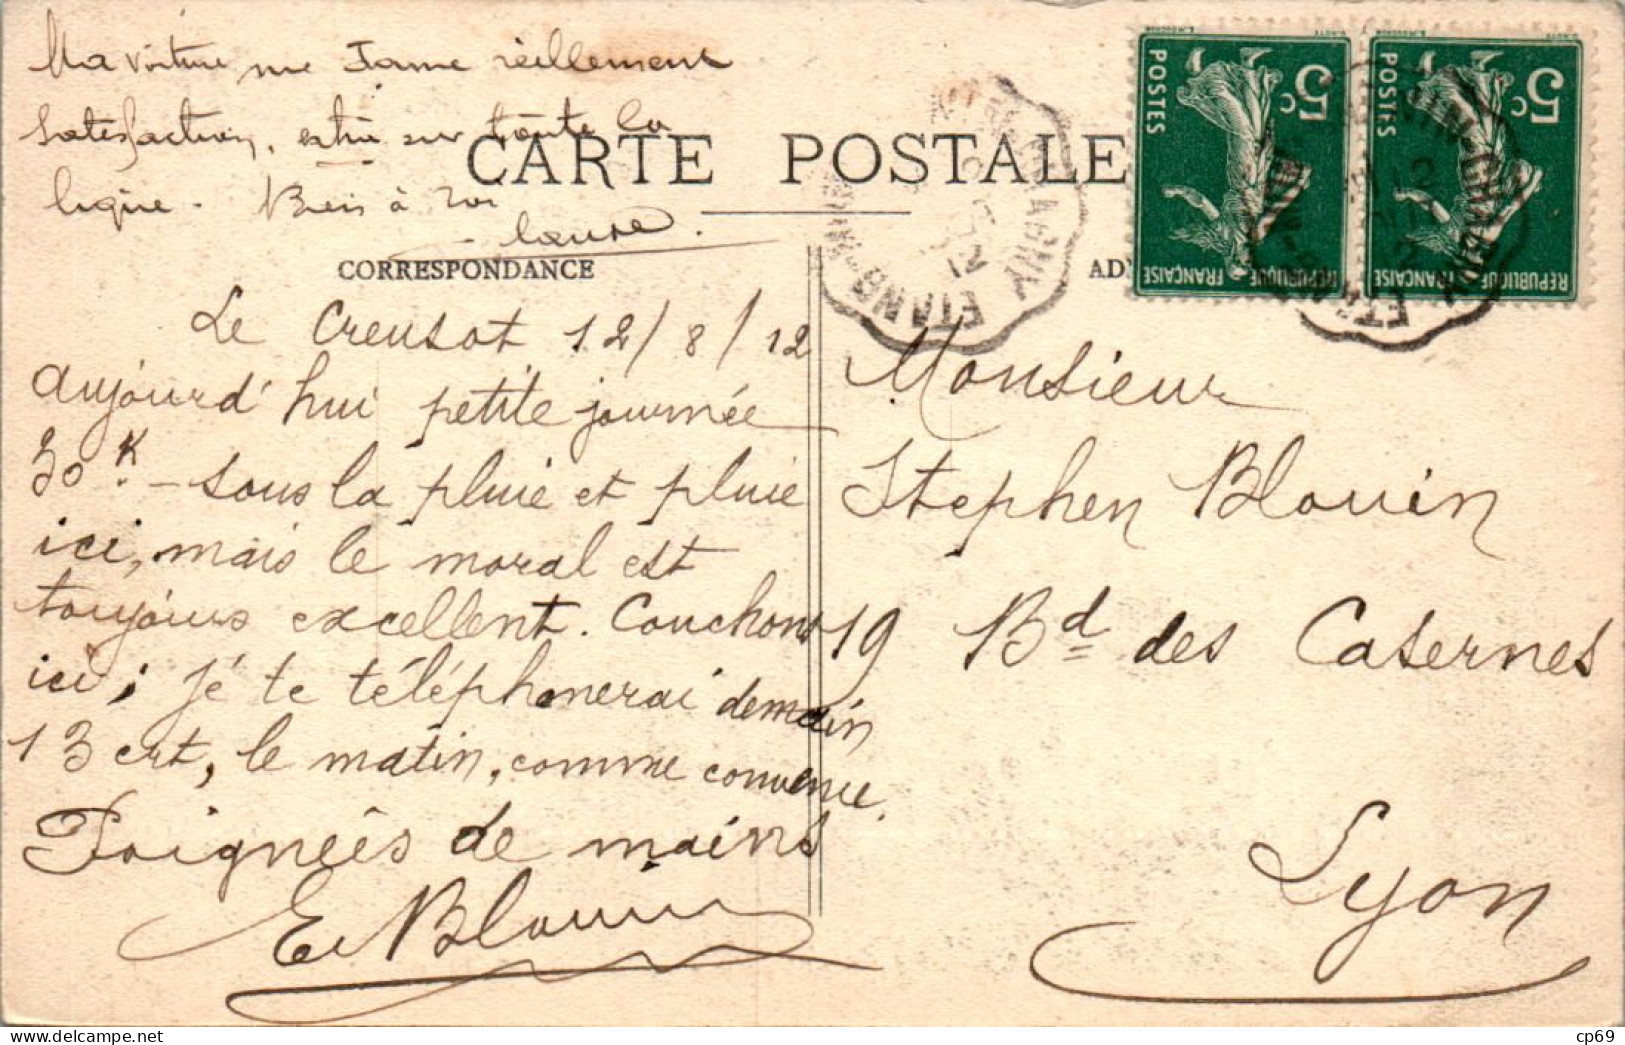 Ma voiture me donne réellement
satisfaction, extra sur toute la
ligne. Bien à toi
CARTE POSTALE
CORRESPONDANCE
AD
Le Creusot 12/8/12
aujourd'hui petite journée
30 K. - sous la pluie et pluie
ici, mais le moral est
toujours excellent. Couchons
ici; je te téléphonerai demain
13 crt, le matin, comme convenu.
Poignées de mains
E. Blouin
Monsieur
Stephen Blouin
19 Bd des Casernes
Lyon
POSTES
5c
RÉPUBLIQUE FRANÇAISE
POSTES
5c
RÉPUBLIQUE FRANÇAISE
ETANG
12
ETANG
cp69